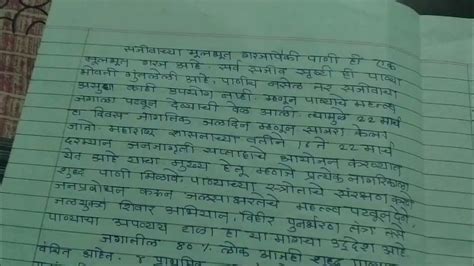 सजीवाच्या मूलभूत गरजांपैकी पाणी ही एक
मूलभूत गरज आहे. सर्व सजीव सृष्टी ही पाण्या
भोवती गुंतलेली आहे. पाणीच नसेल तर सजीवांचा
असूनही काही उपयोग नाही. म्हणून पाण्याचे महत्त्व
जगाला पटवून देण्याची वेळ आली. त्यामुळे 22 मार्च
हा दिवस जागतिक जलदिन म्हणून साजरा केला
जातो. महाराष्ट्र शासनाच्या वतीने 16 ते 22 मार्च
दरम्यान जनजागृती सप्ताहाचे आयोजन करण्यात
येत आहे याचा मुख्य हेतू म्हणजे प्रत्येक नागरिकाला
शुद्ध पाणी मिळावे. पाण्याच्या स्त्रोतांचे संरक्षण करणे
जनप्रबोधन करून जलसाक्षरतेचे महत्त्व पटवून देणे,
जलयुक्त शिवार अभियान, विहीर पुनर्भरण तंत्र
पाण्याचा अपव्यय टाळा हा या मागचा उद्देश आहे
जगातील 80% लोक आजही शुद्ध
वंचित आहेत.